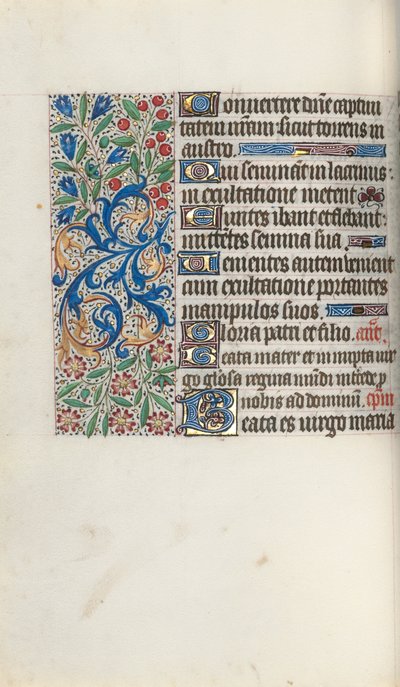 Conuertere dñe captiui
tatem nr̃am: sicut torrens in
austro.
Qui seminãt in lacrimis:
in exultatione metent
Euntes ibant et flebant:
mittẽtes semina sua.
Uenientes autem uenient
cum exultatione portantes
manipulos suos.
Gloria patri et filio. añe.
Beata mater et innupta uir
go glosa regina mũdi ĩtercede p
nobis ad dominũ. cpm
Beata es uirgo maria